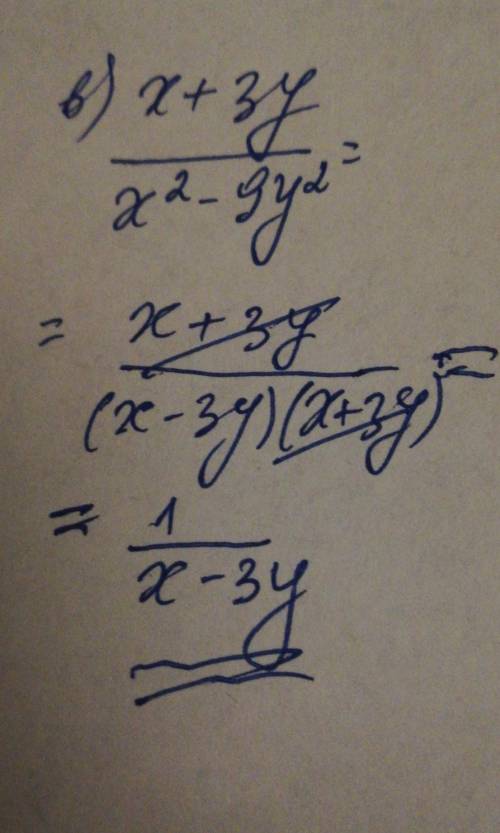 в) x + 3y
x² - 9y² =
= x + 3y
(x - 3y)(x+3y) =
= 1
x - 3y